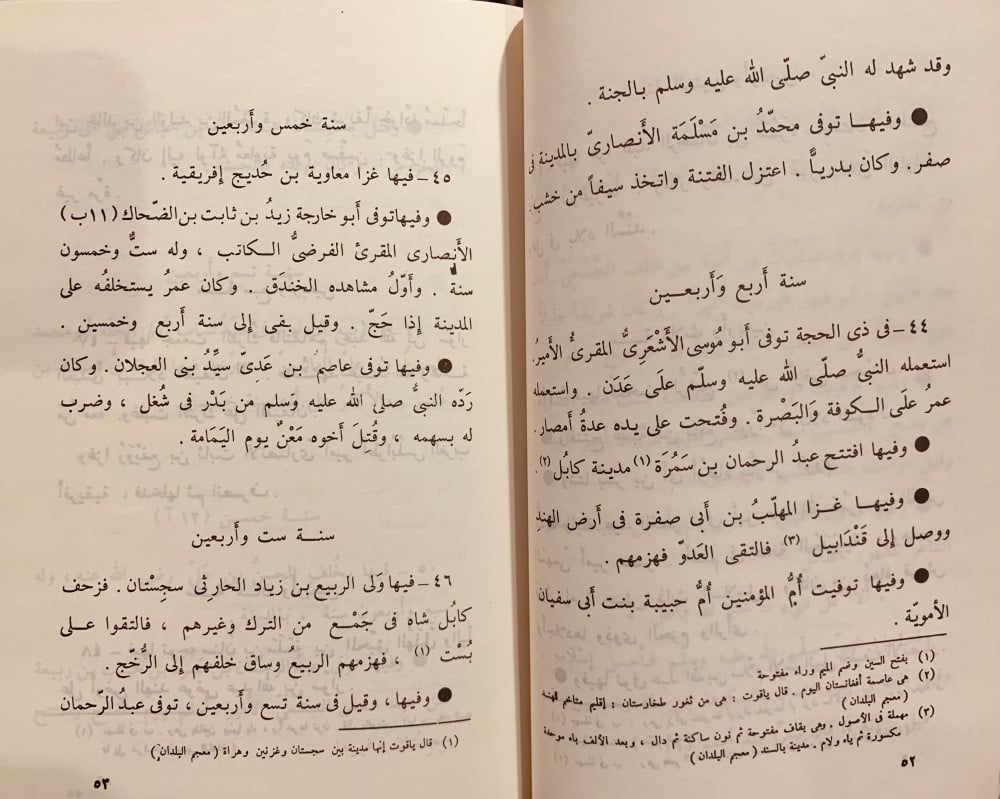 وقد شهد له النبىّ صلّى الله عليه وسلم بالجنة .
● وفيهـا توفى محمّدُ بن مَسْلَمَة الأَنصارىّ بالمدينة فى
صفر. وكان بدرياًّ . اعتزل الفتنة واتخذ سيفاً من خشب.
سنة أَربع وَأَربعـين
٤٤ – فى ذى الحجة توفى أَبو مُوسى الأَشْعَرِىُّ المقرئُ الأَميرُ.
استعمله النبىُّ صلّى الله عليه وسلّم علَى عَدَن . واستعمله
عمرُ علَى الـكوفة وَالبَصْرة . وفُتحت على يده عدةُ أَمصار.
● وفيها افتتح عبدُ الرحمان بن سَمُرَة (١) مدينة كابُل (٢).
● وفيهـا غـزا المهلّبُ بن أَبى صفرة فى أَرض الهند
ووصل إلى قَنْدَابيل (٣) فالتقى العَدوّ فهزمهم .
● وفيها توفيت أُمُّ المؤمنين أُمُّ حبيبة بنت أَبى سفيان
الأمويّة .
(١) بفتح السين وضم الميم وراء مفتوحة
(٢) هى عاصمة أفغانستان اليوم . قال ياقوت : هى من ثغور طخارستان : إقليم متاخم للهند
( معجم البلدان )
(٣) مهملة فى الأصول . وهى بقاف مفتوحة ثم نون ساكنة ثم دال ، وبعد الألف باء موحدة
مكسورة ثم ياء ولام . مدينة بالسند ( معجم البلدان )
٥٢
سنة خمس وأَربعين
٤٥ – فيها غزا معاوية بن حُديج إفريقية .
● وفيهاتوفى أَبو خارجة زيدُ بن ثابت بن الضّحاك (١١ب)
الأَنصارى المقرئ الفرضىُّ الـكاتب ، وله ستٌّ وخمسون
سنة . وأَوّلُ مشاهده الخندَق . وكان عمرُ يستخلفُه على
المدينة إذا حَجّ . وقيل بقى إلى سنة أَربع وخمسين .
● وفيها توفى عاصمُ بن عَدِىّ سيِّدُ بنى العجلان . وكان
رَدّه النبىُّ صلى الله عليه وَسلم من بَدْر فى شُغل ، وضرب
له بسهمه ، وقُتِلَ أَخوه مَعْنٌ يوم اليَمَامة .
سنـة ست وأَربعين
٤٦ – فيها وَلى الربيع بن زياد الحارثى سجِسْتان . فزحف
كابُل شاه فى جَمْـع من الترك وغيرهم ، فالتقوا علـى
بُسْت (١) ، فهزمهم الربيعُ وساق خلفهم إلى الرُّخّج .
● وفيها ، وقيل فى سنة تسع وأَربعين ، توفى عبدُ الرّحمان
(١) قال ياقوت إنها مدينة بين سجستان وغزنين وهراة ( معجم البلدان )
٥٣